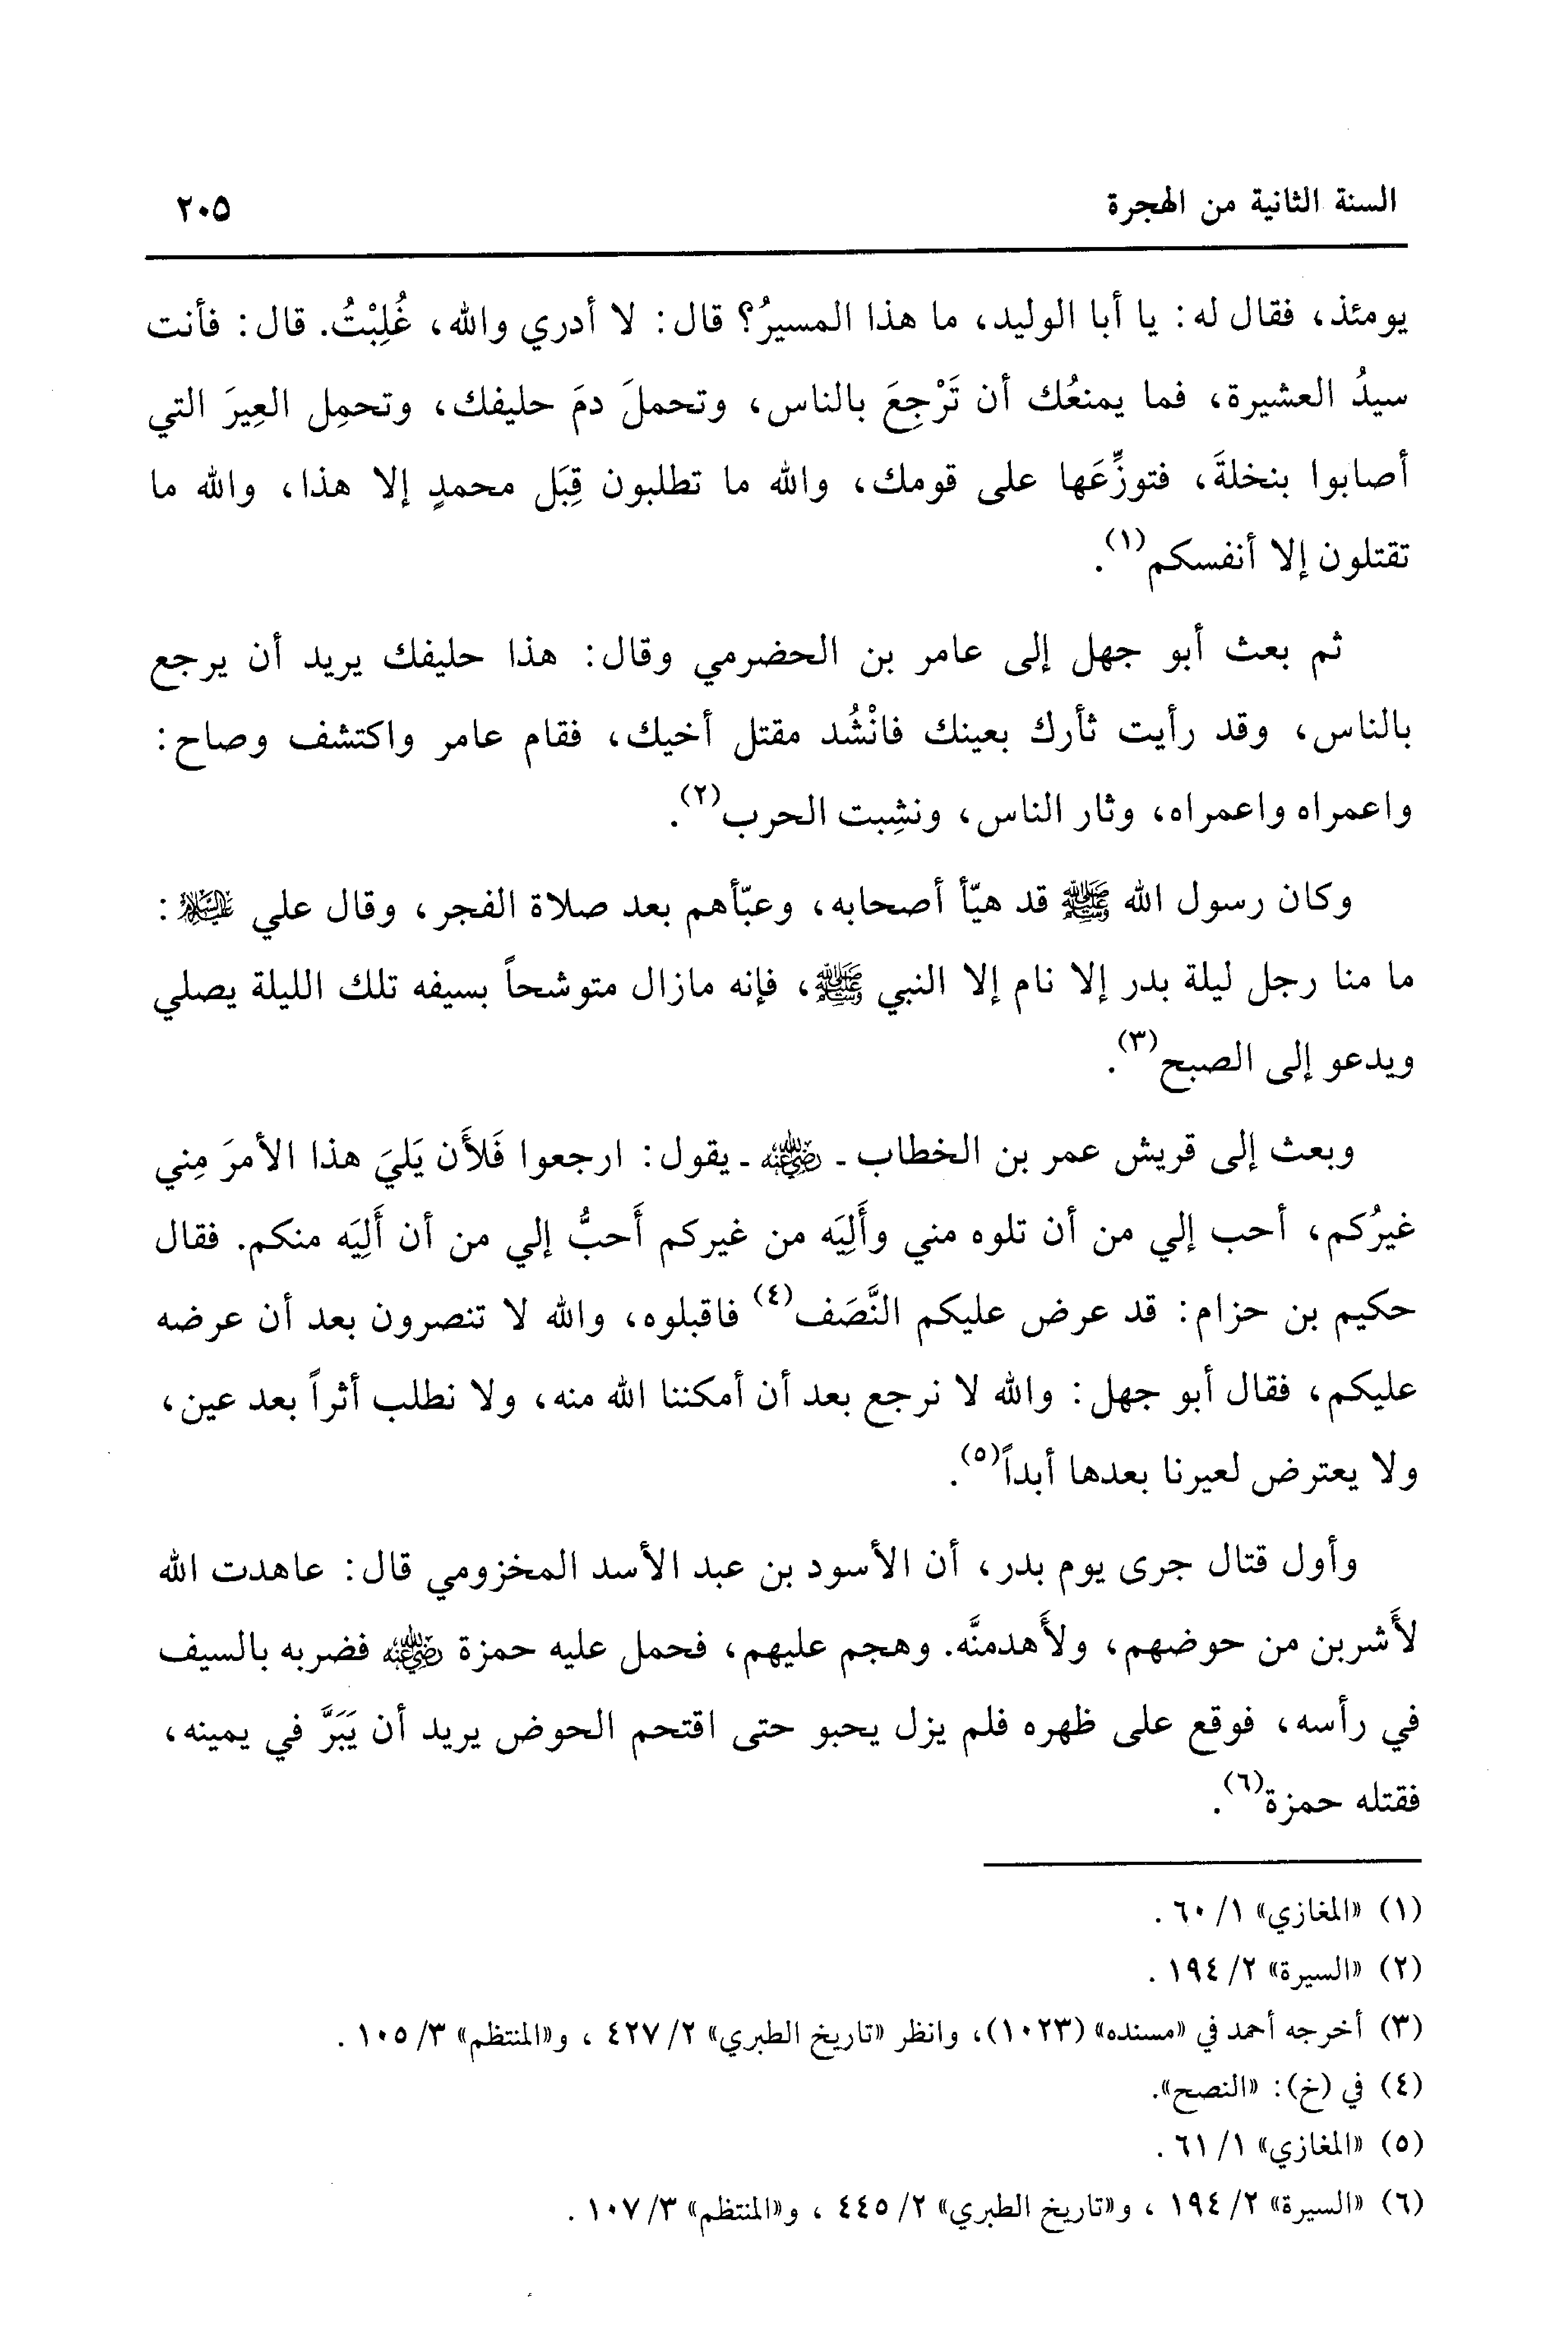 السنة الثانية من الهجرة ٢٠٥
يومئذ، فقال له: يا أبا الوليد، ما هذا المسيرُ؟ قال: لا أدري والله، غُلِبْتُ. قال: فأنت
سيدُ العشيرة، فما يمنعُك أن تَرْجِعَ بالناس، وتحملَ دمَ حليفك، وتحمِل العِيرَ التي
أصابوا بنخلةَ، فتوزِّعَها على قومك، والله ما تطلبون قِبَل محمدٍ إلا هذا، والله ما
تقتلون إلا أنفسكم(١).
ثم بعث أبو جهل إلى عامر بن الحضرمي وقال: هذا حليفك يريد أن يرجع
بالناس، وقد رأيت ثأرك بعينك فانْشُد مقتل أخيك، فقام عامر واكتشف وصاح:
واعمراه واعمراه، وثار الناس، ونشِبت الحرب(٢).
وكان رسول الله ﷺ قد هيّأ أصحابه، وعبّأهم بعد صلاة الفجر، وقال علي عليه السلام:
ما منا رجل ليلة بدر إلا نام إلا النبي ﷺ، فإنه مازال متوشحاً بسيفه تلك الليلة يصلي
ويدعو إلى الصبح(٣).
وبعث إلى قريش عمر بن الخطاب ـ رضي الله عنه ـ يقول: ارجعوا فَلأَن يَليَ هذا الأمرَ مِني
غيرُكم، أحب إلي من أن تلوه مني وأَلِيَه من غيركم أَحبُّ إلي من أن أَلِيَه منكم. فقال
حكيم بن حزام: قد عرض عليكم النَّصَف(٤) فاقبلوه، والله لا تنصرون بعد أن عرضه
عليكم، فقال أبو جهل: والله لا نرجع بعد أن أمكننا الله منه، ولا نطلب أثراً بعد عين،
ولا يعترض لعيرنا بعدها أبداً(٥).
وأول قتال جرى يوم بدر، أن الأسود بن عبد الأسد المخزومي قال: عاهدت الله
لأَشربن من حوضهم، ولأَهدمنَّه. وهجم عليهم، فحمل عليه حمزة رضي الله عنه فضربه بالسيف
في رأسه، فوقع على ظهره فلم يزل يحبو حتى اقتحم الحوض يريد أن يَبَرَّ في يمينه،
فقتله حمزة(٦).
(١) «المغازي» ١/ ٦٠ .
(٢) «السيرة» ٢/ ١٩٤ .
(٣) أخرجه أحمد في «مسنده» (١٠٢٣)، وانظر «تاريخ الطبري» ٢/ ٤٢٧ ، و«المنتظم» ٣/ ١٠٥ .
(٤) في (خ): «النصح».
(٥) «المغازي» ١/ ٦١ .
(٦) «السيرة» ٢/ ١٩٤ ، و«تاريخ الطبري» ٢/ ٤٤٥ ، و«المنتظم» ٣/ ١٠٧ .